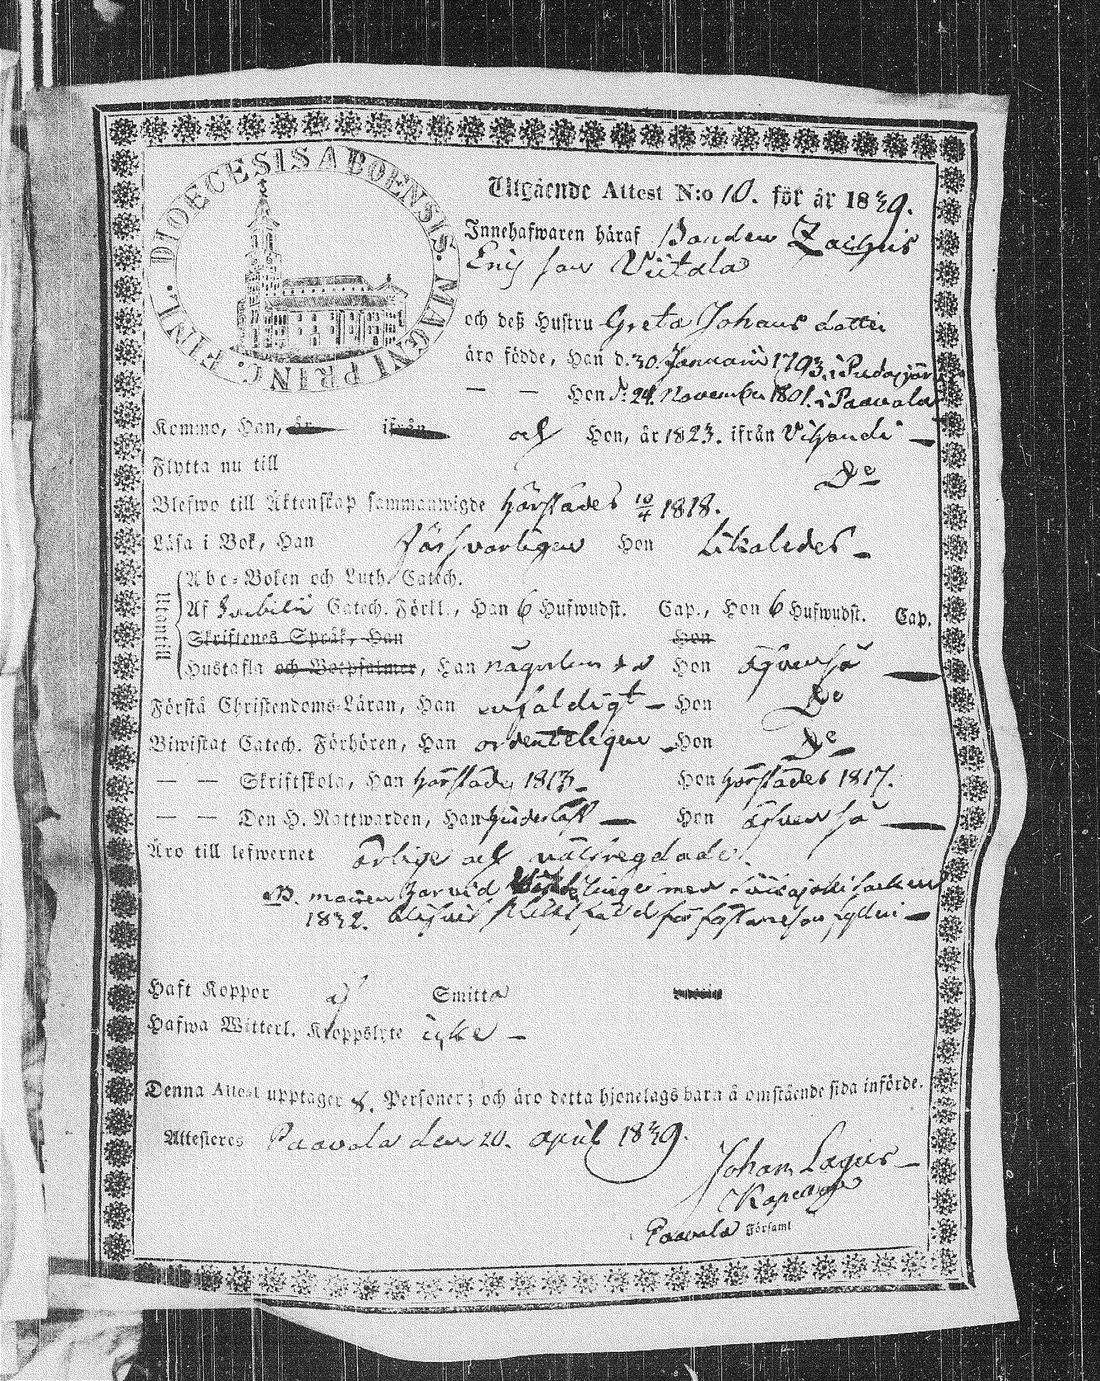 DIOECESIS ABOENSIS. MAGNI PRINC. FINL.
Utgående Attest N:o 10. för år 1839.
Innehafwaren häraf Bonden Zachris
Erics son Viitala
och deß Hustru Greta Johans dotter
äro födde, Han d. 30. Januarii 1793. i Pudasjär
— — Hon d. 24. November 1801. i Paavola
Komne, Han, år ifrån och Hon, år 1823. ifrån Vihandi —
Flytta nu till De
Blefwo till Äktenskap sammanwigde härstädes 10/4 1818.
Läsa i Bok, Han försvarligen Hon Likaledes —
Utantill
Abc-Boken och Luth. Catech.
Af Catech. Förkl., Han 6 Hufwudst. Cap., Hon 6 Hufwudst. Cap.
Skriftenes Språk, Han Hon
Hustafla och Botpsalmer, Han någorlunda Hon äfvenså —
Förstå Christendoms-Läran, Han enfaldigt — Hon De
Biwistat Catech. Förhören, Han ordenteligen — Hon De
— — Skriftskola, Han härstädes Hon härstädes 1817.
— — Den H. Nattwarden, Han Hon äfven så —
Äro till lefwernet ärlige och
1832.
Haft Koppor af Smitta
Hafwa Witterl. Kroppslyte icke —
Denna Attest upptager 8. Personer; och äro detta hjonelags barn å omstående sida införde.
Attesteres Paavola den 20. April 1839.
Johan Lagus —
Kapellan
Paavola Församl